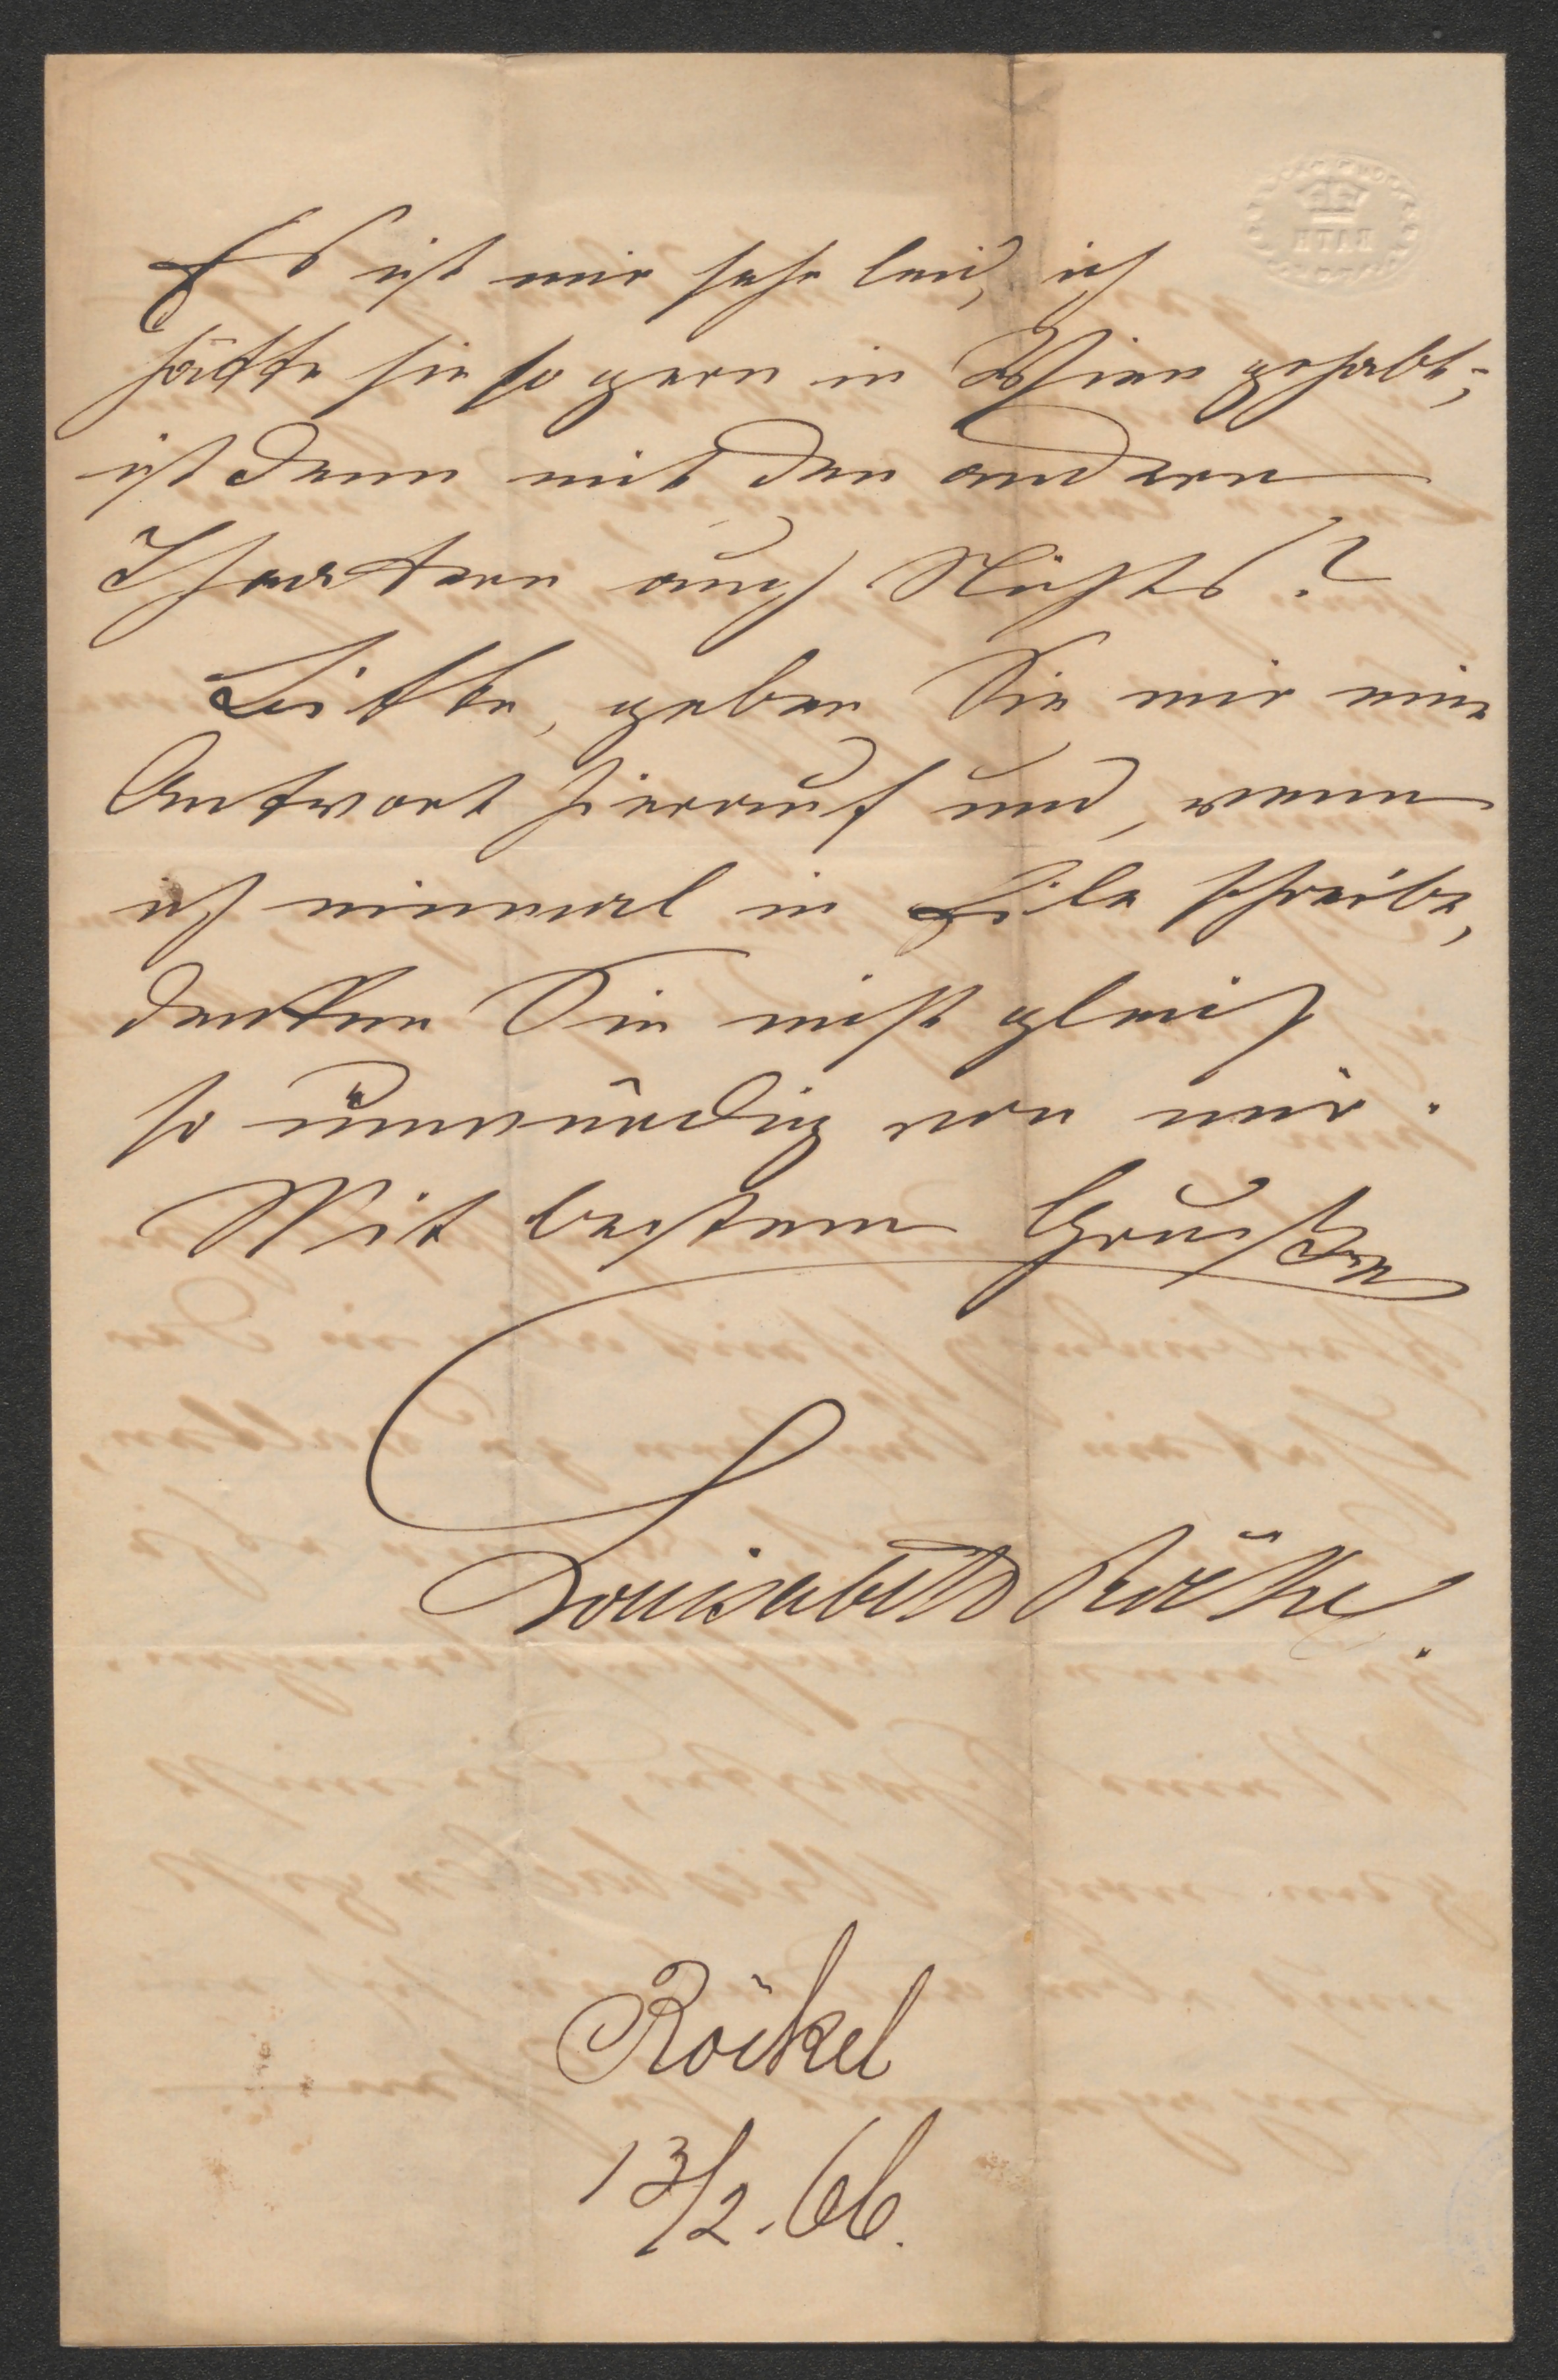 BATH
Es ist mir sehr leid, ich
hätte sie so gern in Wien gehabt;
ist denn mit den andern
Theatern auch Nichts?
Bitte, geben Sie mir eine
Antwort hierauf und, wenn
ich einmal in Eile schreibe,
denken Sie nicht gleich
so unwürdig von mir.
Mit bestem Gruße
Louisabeth Röckel.
Röckel
13/2. 66.